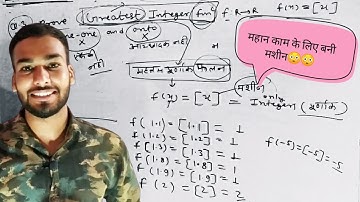 Prove Greatest Integer fnⁿ f: R→R f(x) = [x]
one-one and onto
नहीं
महत्तम पूर्णांक फलन
महान काम के लिए बनी
मशीन😳😳
मशीन
f(x) = [x] = only
Integer (पूर्णांक)
f(1.1) = [1.1] = 1
f(1.2) = [1.2] = 1
f[1.3) = [1.3] = 1
f(1.8) = [1.8] = 1
f(1.9) = [1.9] = 1
f(2) = [2] = 2
f(-5) = [-5] = -5